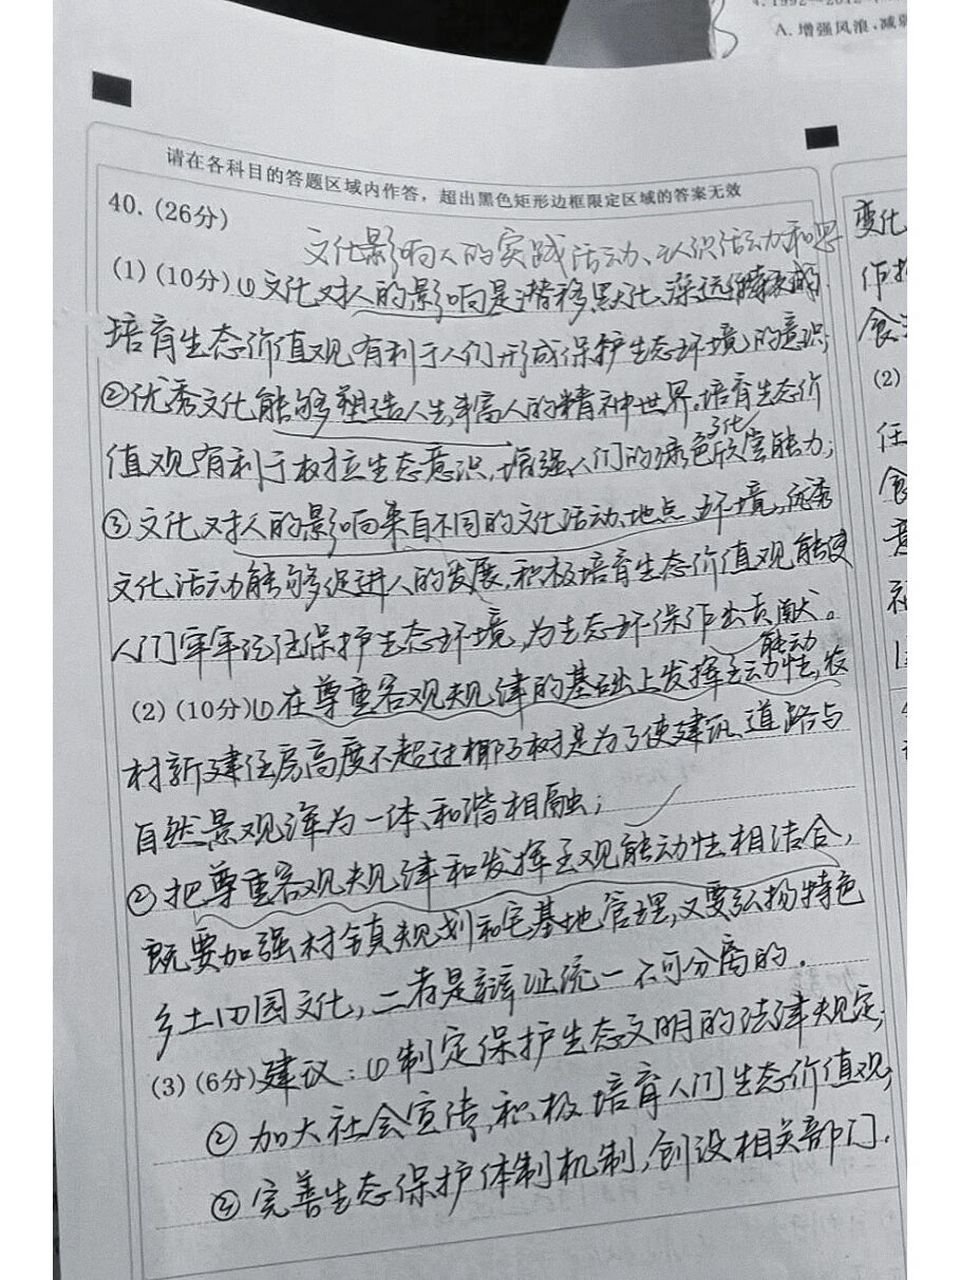 A. 增强风浪,减弱
请在各科目的答题区域内作答，超出黑色矩形边框限定区域的答案无效
40. (26分)
文化影响人的实践活动、认识活动和思
(1) (10分)① 文化对人的影响是潜移默化、深远持久的,
培育生态价值观有利于人们形成保护生态环境的意识;
②优秀文化能够塑造人生,丰富人的精神世界,培育生态价
值观有利于树立生态意识,增强人们的绿色文化欣赏能力;
③文化对人的影响来自不同的文化活动、地点、环境,优秀
文化活动能够促进人的发展,积极培育生态价值观能使
人们牢牢记住保护生态环境,为生态环保作出贡献。
能动
(2) (10分)①在尊重客观规律的基础上发挥主动性,农
村新建住房高度不超过椰子树是为了使建筑、道路与
自然景观浑为一体、和谐相融;
②把尊重客观规律和发挥主观能动性相结合,
既要加强村镇规划和宅基地管理,又要弘扬特色
乡土田园文化,二者是辩证统一不可分离的.
(3) (6分)建议:①制定保护生态文明的法律规定;
②加大社会宣传,积极培育人们生态价值观;
③完善生态保护体制机制,创设相关部门.
变化
作
食
(2)
任
食
意
社